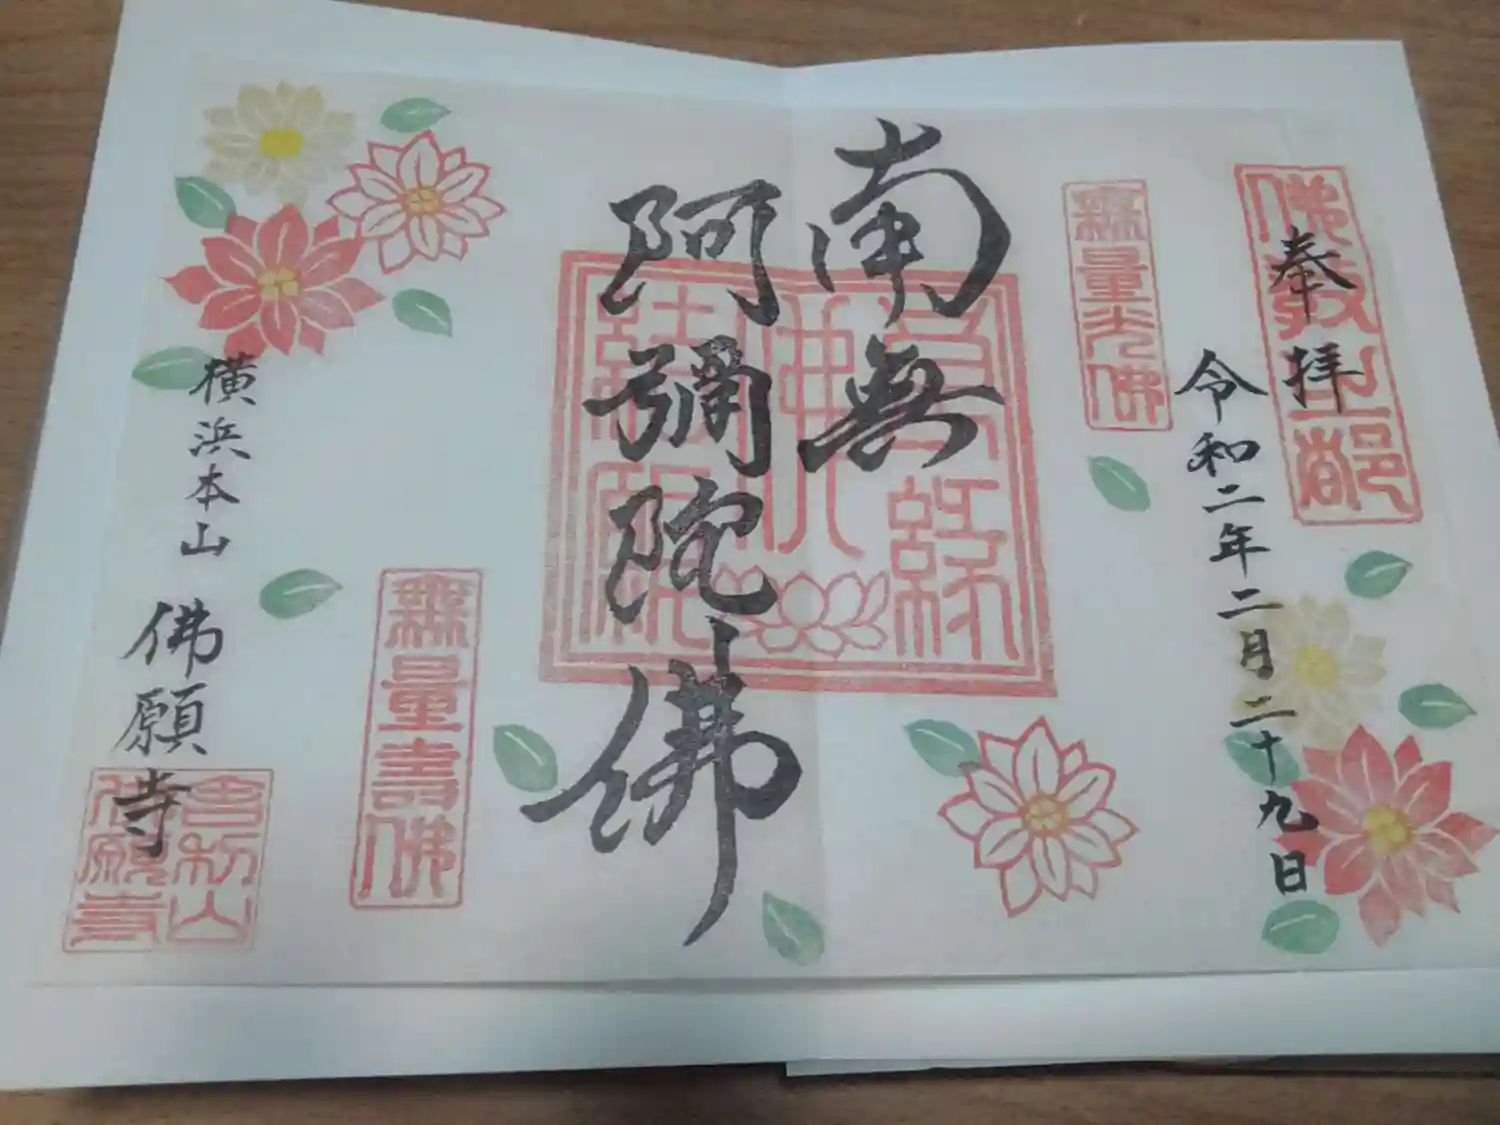 奉拝
佛教之都
令和二年二月二十九日
無量光佛
南無
阿彌陀佛
無量壽佛
横浜本山 佛願寺
舎利山
佛願寺